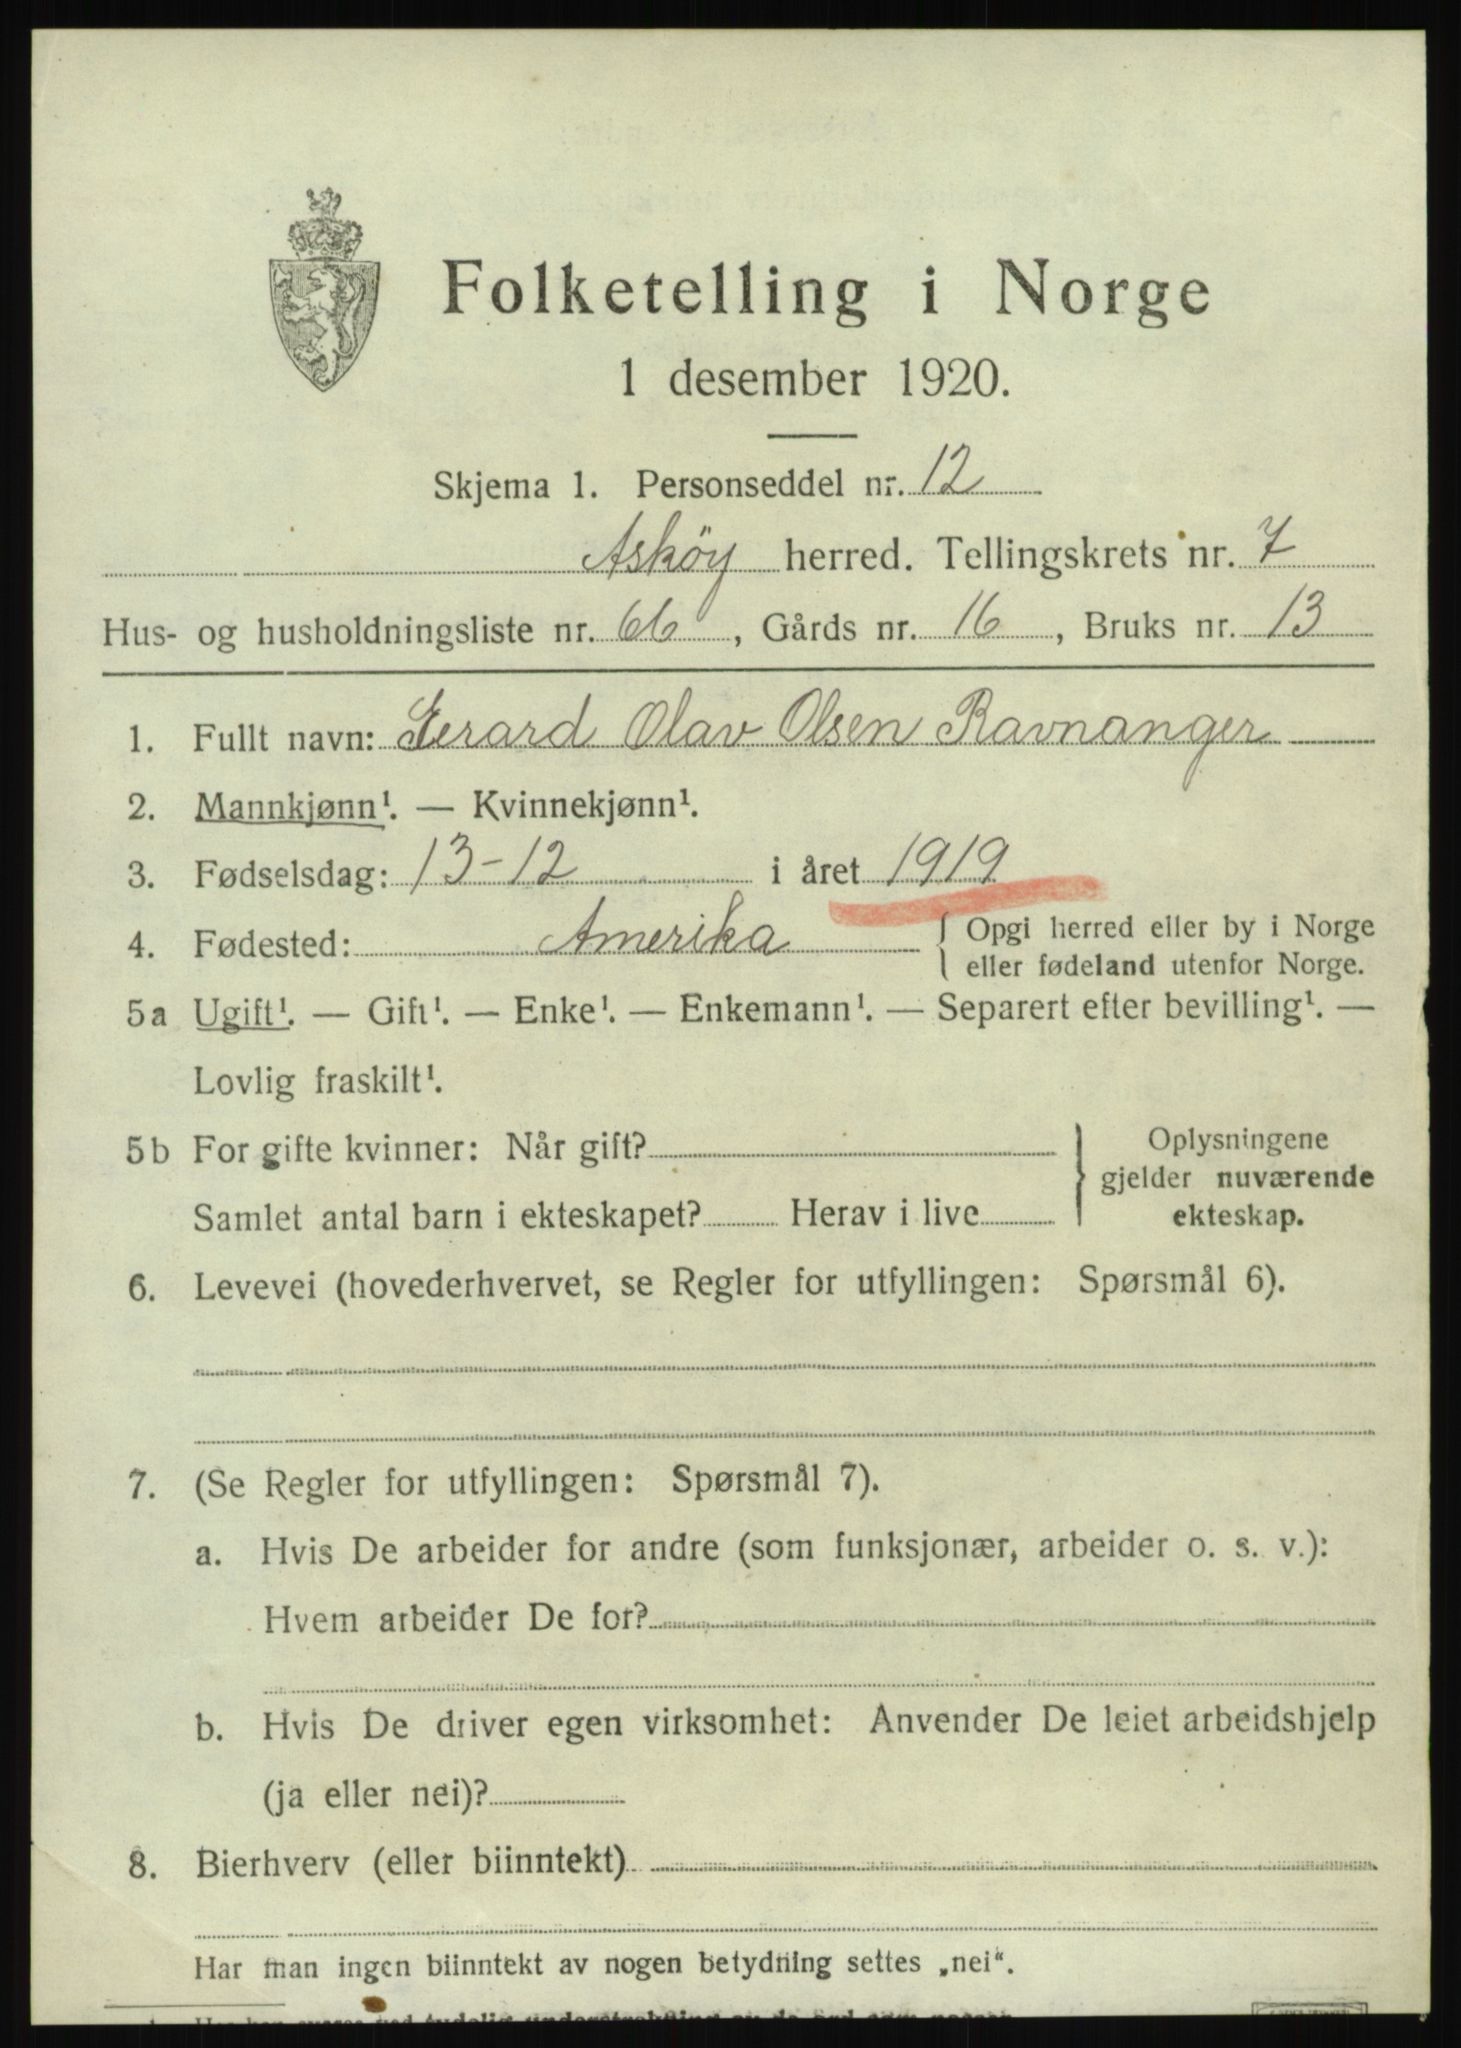 Folketelling i Norge
1 desember 1920.
Skjema 1. Personseddel nr. 12
Askøy herred. Tellingskrets nr. 7
Hus- og husholdningsliste nr. 66, Gårds nr. 16, Bruks nr. 13
1. Fullt navn: Gerard Olav Olsen Ravnanger
2. Mannkjønn¹. — Kvinnekjønn¹.
3. Fødselsdag: 13-12 i året 1919
4. Fødested: Amerika { Opgi herred eller by i Norge
eller fødeland utenfor Norge.
5a Ugift¹. — Gift¹. — Enke¹. — Enkemann¹. — Separert efter bevilling¹. —
Lovlig fraskilt¹.
5b For gifte kvinner: Når gift?
Samlet antal barn i ekteskapet? Herav i live
} Oplysningene
gjelder nuværende
ekteskap.
6. Levevei (hovederhvervet, se Regler for utfyllingen: Spørsmål 6).
7. (Se Regler for utfyllingen: Spørsmål 7).
a. Hvis De arbeider for andre (som funksjonær, arbeider o. s. v.):
Hvem arbeider De for?
b. Hvis De driver egen virksomhet: Anvender De leiet arbeidshjelp
(ja eller nei)?
8. Bierhverv (eller biinntekt)
Har man ingen biinntekt av nogen betydning settes „nei“.